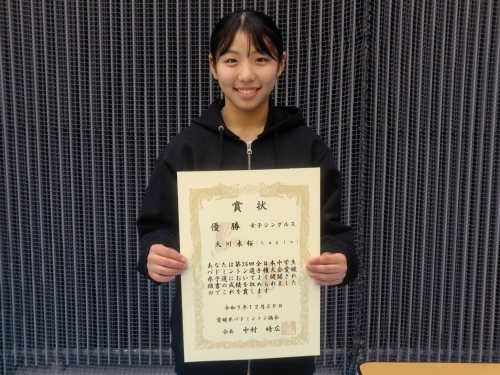 賞状
優勝 女子シングルス
大川 未桜 (Lapin)
あなたは第26回全日本中学生
バドミントン選手権大会愛媛
県予選においてよく健闘され
頭書の成績を収められました
のでこれを賞します
令和7年12月20日
愛媛県バドミントン協会
会長 中村 時広